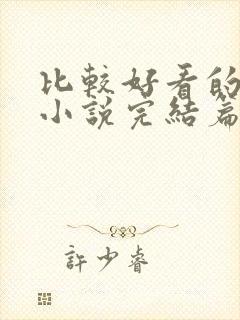 比較好看的
小說完結篇
許少睿